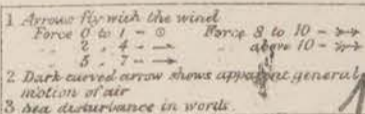 1 Arrows fly with the wind
Force 0 to 1 - ⊙ Force 8 to 10 - ➳
" 2 " 4 - → " above 10 - ➳
" 5 " 7 - →
2 Dark curved arrow shows apparent general
motion of air
3 Sea disturbance in words.